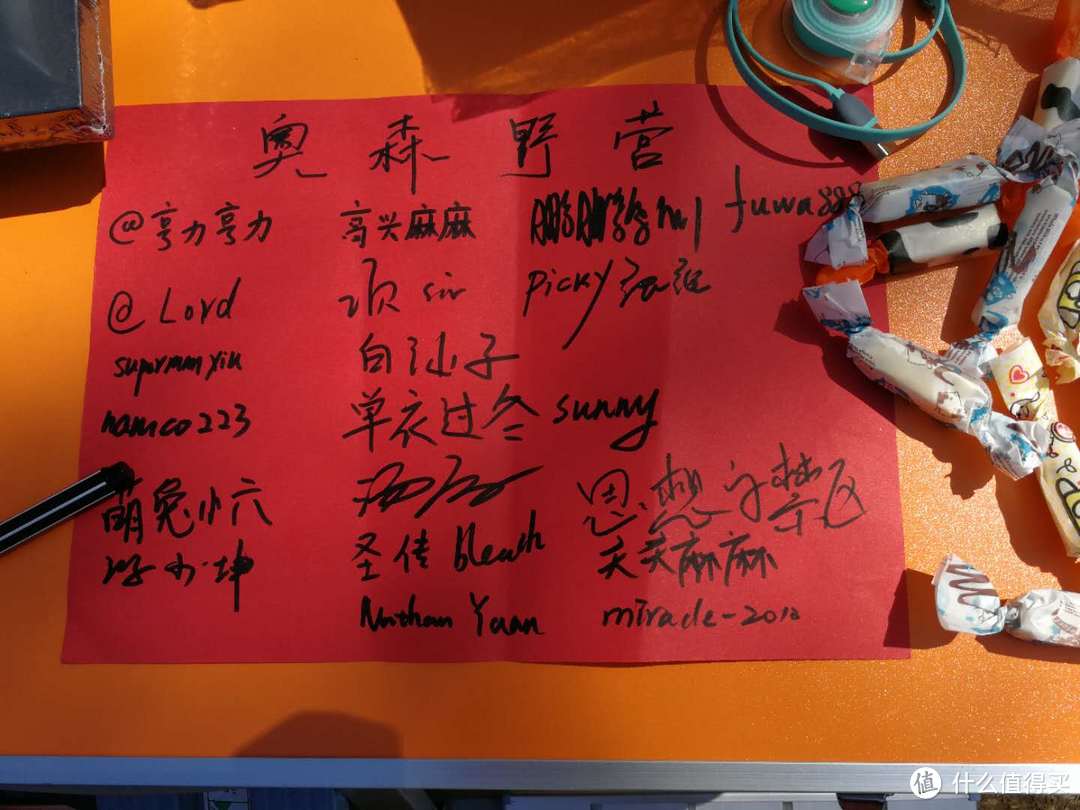 奥森野营
@亨力亨力 高兴麻麻 fuwa888
@Lord 项sir Picky
superman xiu 白沙子
namco223 单衣过冬 sunny
萌兔小六 思想の禁区
小坤 圣传bleach 天天麻麻
Nathan Yuan miracle-2010
值 什么值得买